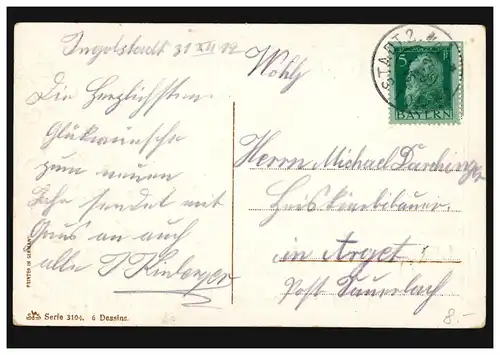 Ingolstadt 31 XII 12
Wohlg
Die Herzlichsten
Glükwünsche
zum neuen
Jahr sendet mit
Grus an auch
alle
Herrn Michael Darchinger
in Arget
Post Sauerlach
STADT 2.
5
BAYERN
PRINTED IN GERMANY
Serie 3104. 6 Dessins.
8.-